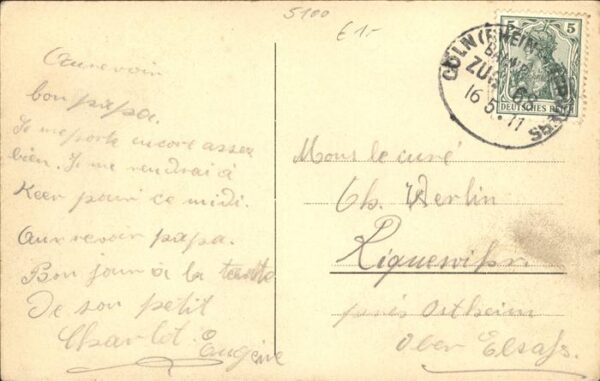 5100
€1-
Aurevoir
bon papa.
Je me porte encore assez
bien. Je me rendrai à
Keer pour ce midi.
Aurevoir papa.
Bon jour à la tante
De son petit
Charlot. Eugène
5 5
DEUTSCHES REICH
CÖLN (RHEIN)
BAHNP.
ZUG 63
16 5. 11
Mons le curé
Ch. Werlin
Riquewihr
près Ostheim
Ober Elsass.